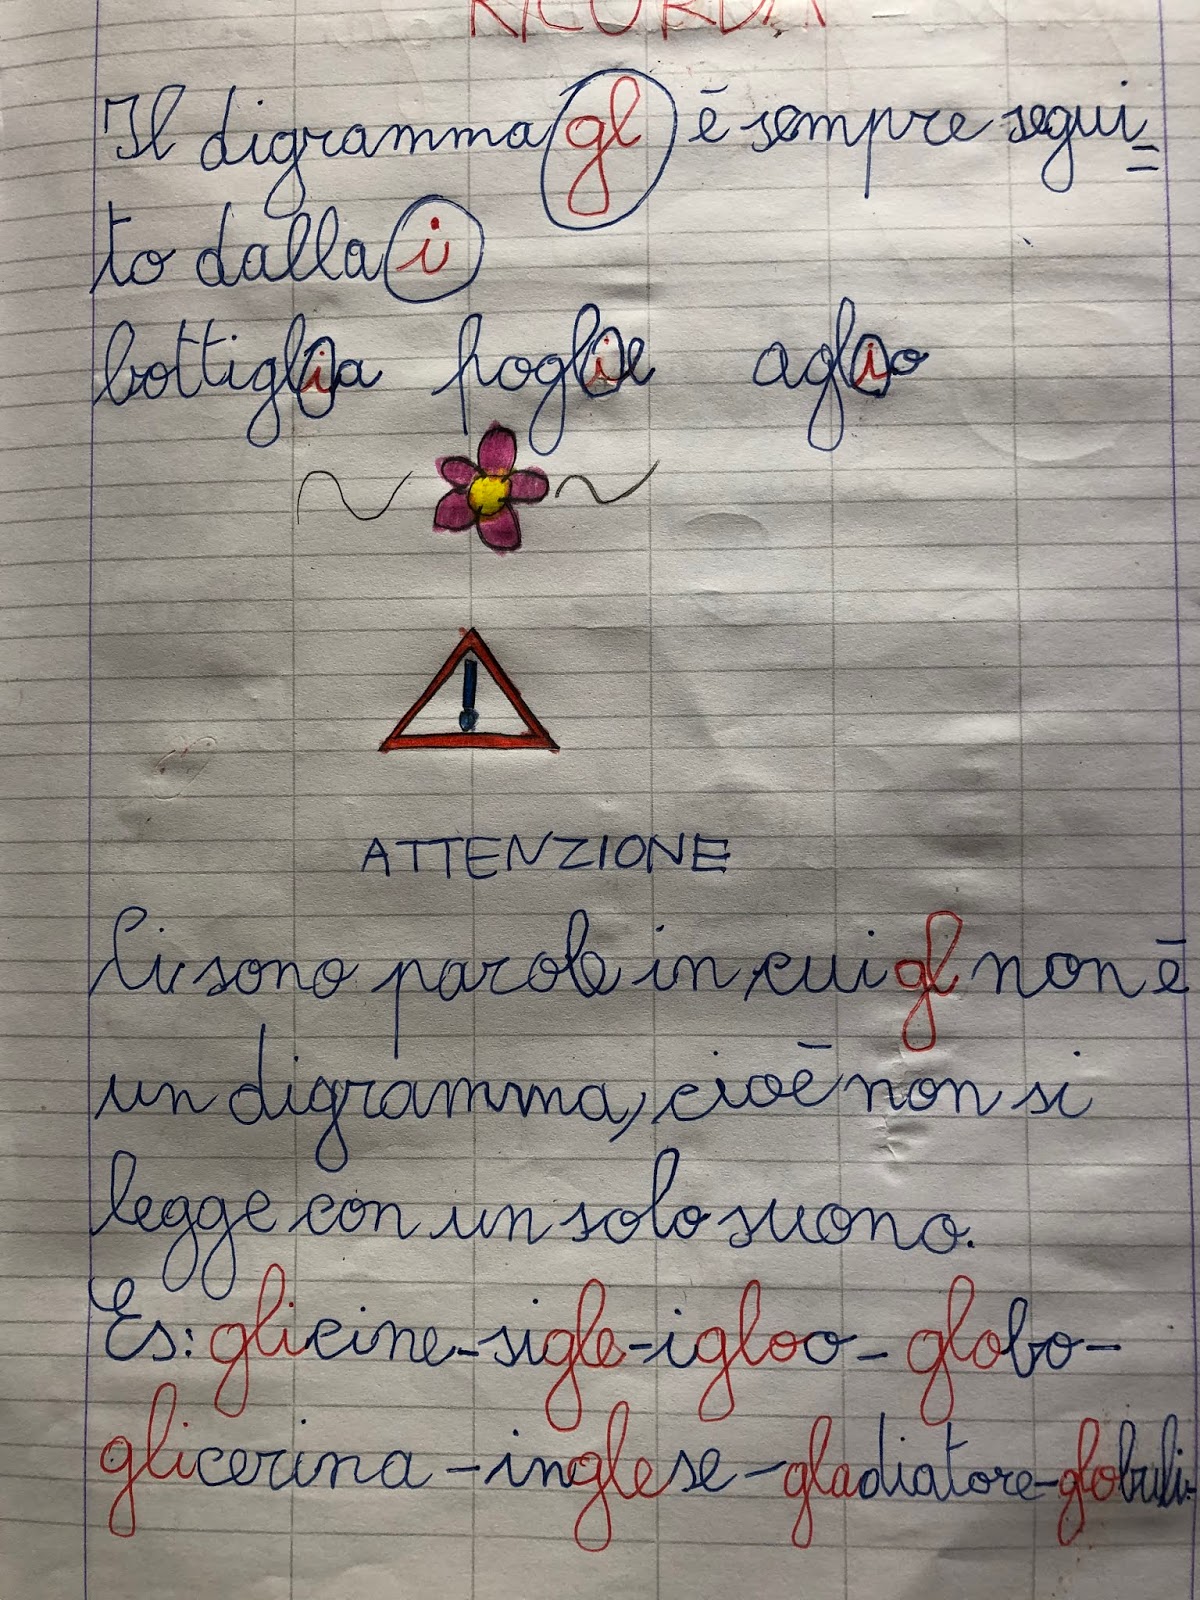 RICORDA
Il digramma gl è sempre segui=
to dalla i
bottiglia foglie aglio
ATTENZIONE
Ci sono parole in cui gl non è
un digramma, cioè non si
legge con un solo suono.
Es: glicine-sigle-igloo-globo-
glicerina-inglese-gladiatore-globuli-